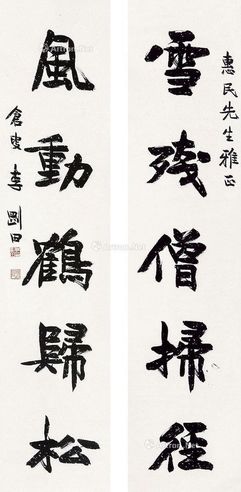 惠民先生雅正
雪殘僧掃徑
風動鶴歸松
倉叟李剛田